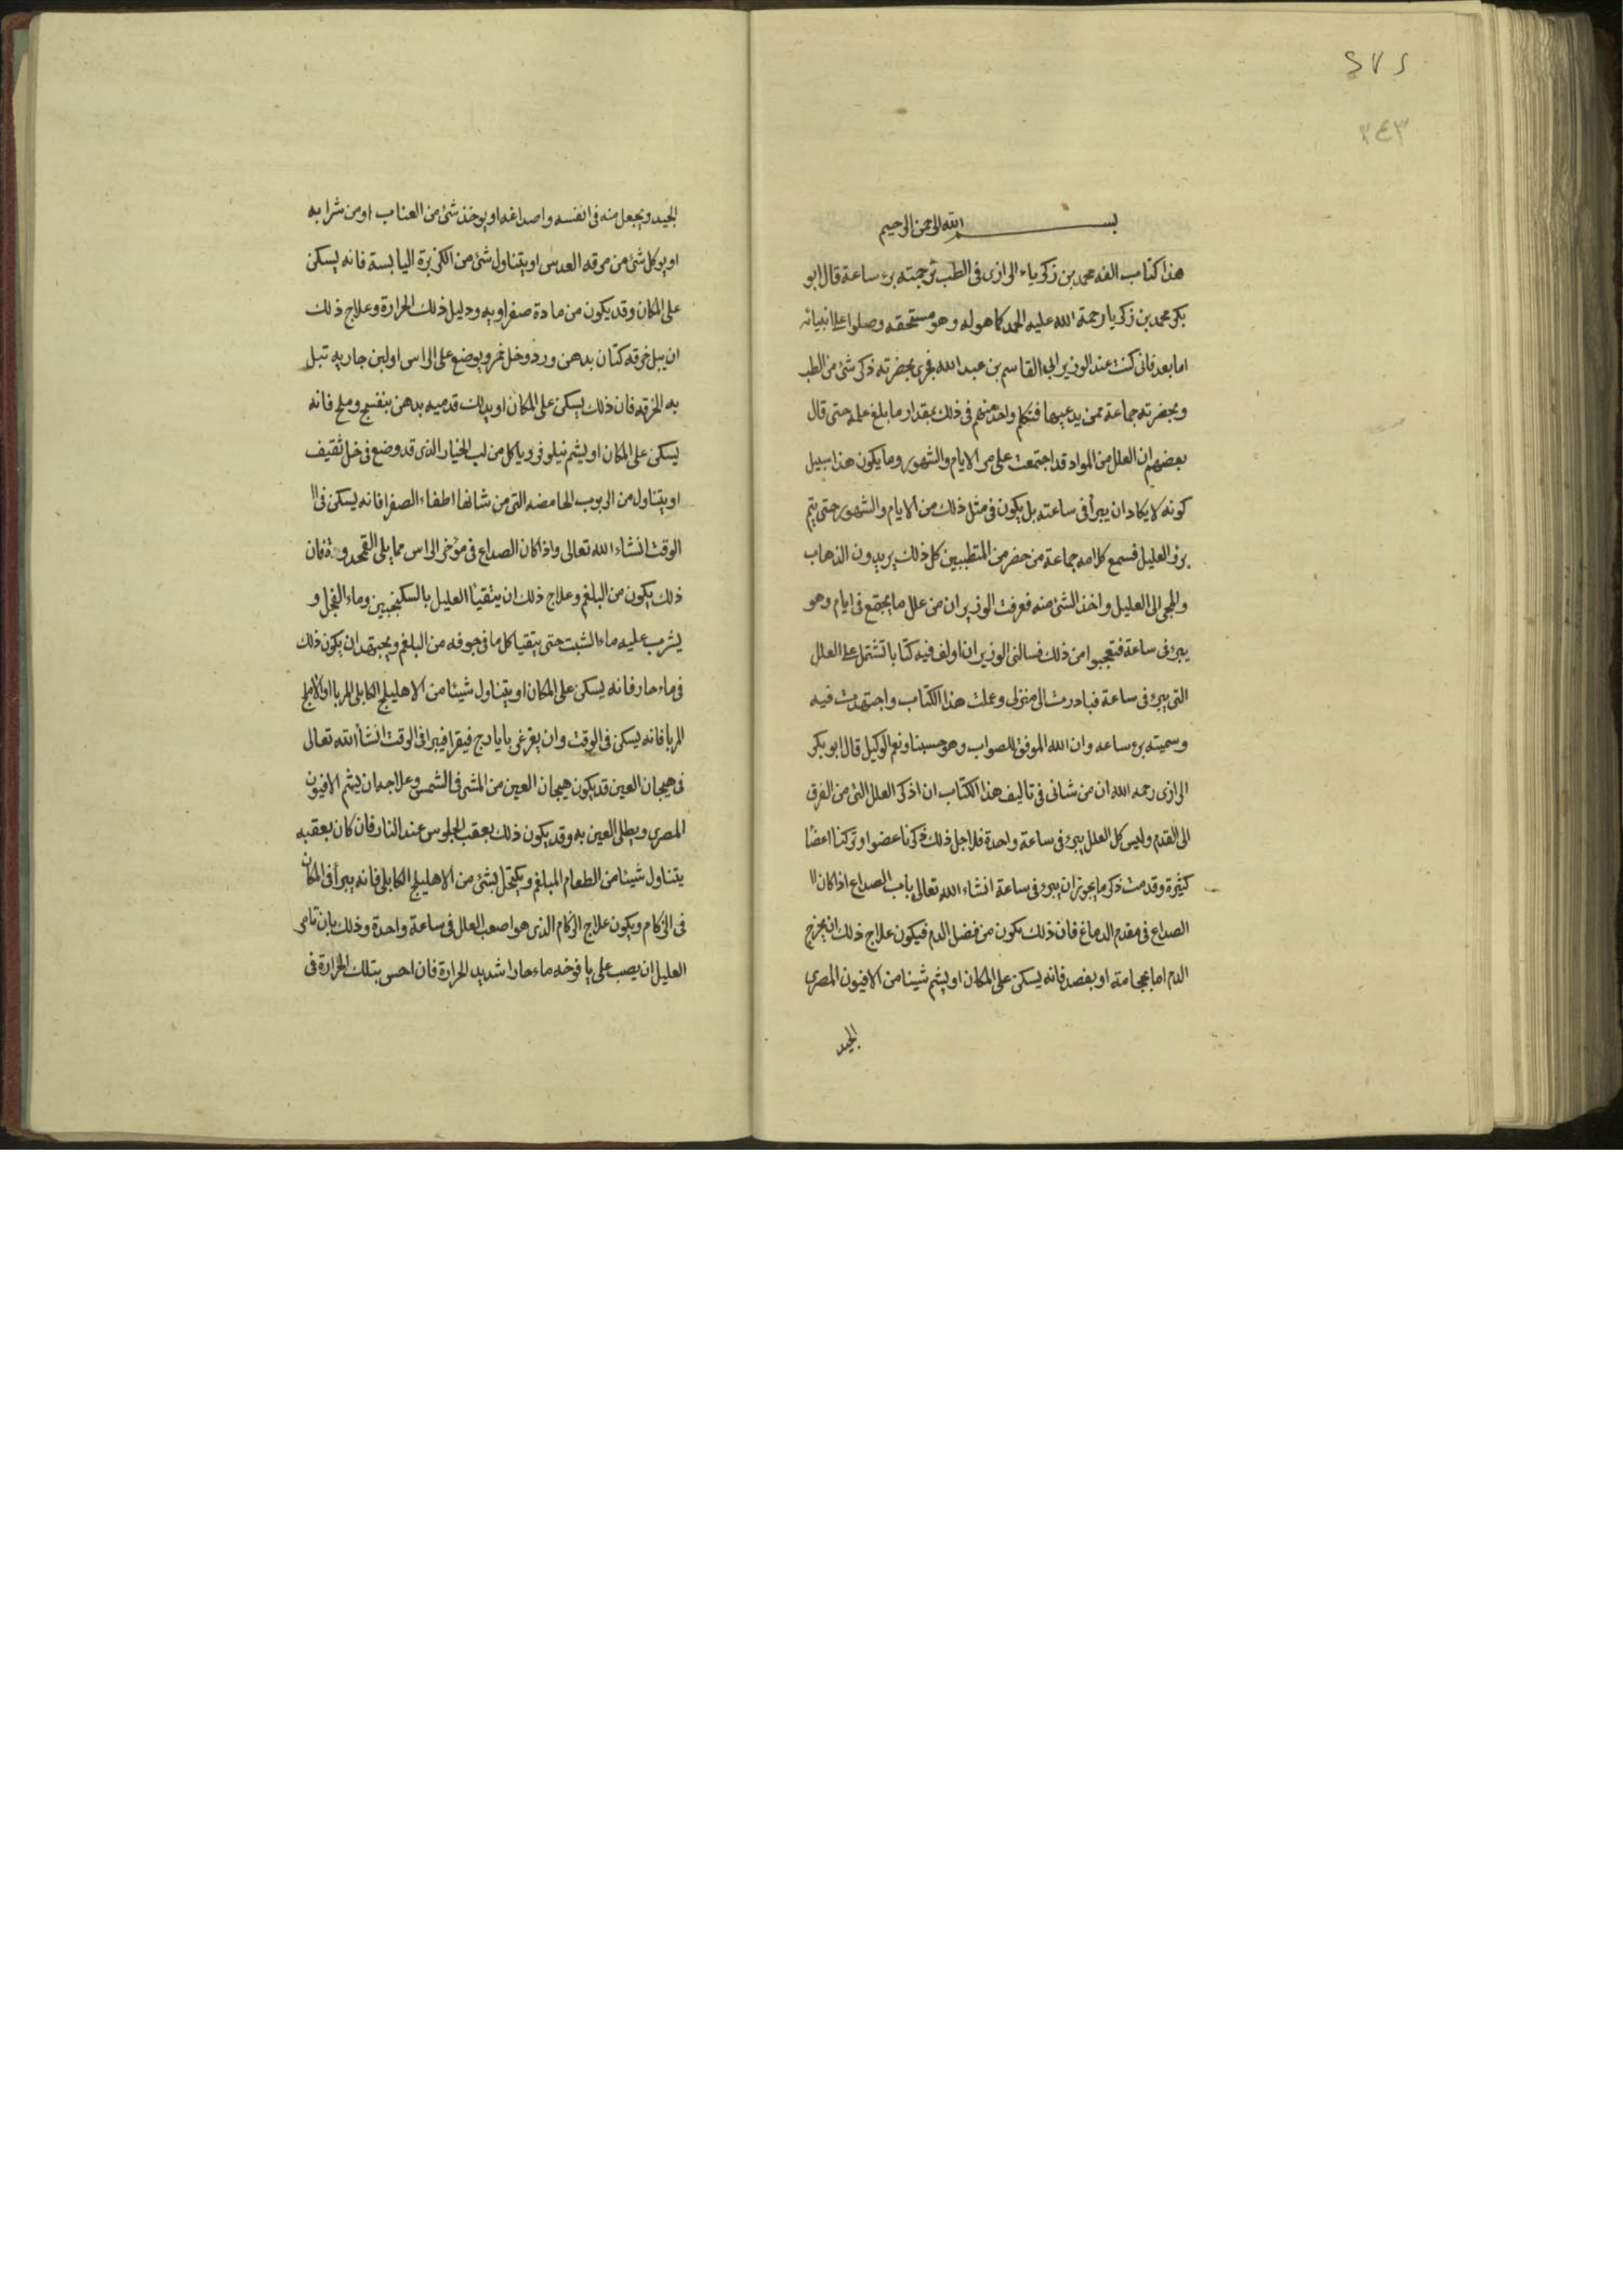 ٢٧٢
٣٤٣
بســـم الله الرحمن الرحيم
هذا كتاب الفه محمد بن زكرياء الرازى فى الطب ترجمته برء ساعة قال ابو
بكر محمد بن زكريا رحمة الله عليه الحمد كما هو له وهو مستحقه وصلوا على انبيائه
اما بعد فانى كنت عند الوزير ابى القاسم بن عبد الله فجرى بحضرته ذكر شئ من الطب
وبحضرته جماعة ممن يدعيها فتكلم واحد منهم فى ذلك بمقدار ما بلغ علمه حتى قال
بعضهم ان العلل من المواد قد اجتمعت على مر الايام والشهور وما يكون هذا سبيل
كونه لا يكاد ان يبرأ فى ساعته بل يكون فى مثل ذلك من الايام والشهور حتى يتم
برؤ العليل فسمع كلامه جماعة من حضر من المتطببين كل ذلك يريدون الذهاب
والمجى الى العليل واخذ الشئ منه فعرفت الوزير ان من علل ما يجتمع فى ايام وهو
يبرء فى ساعة فتعجبوا من ذلك فسالنى الوزير ان اولف فيه كتابا تشتمل على العلل
التى يبرء فى ساعة فبادرت الى منزلى وعملت هذا الكتاب واجتهدت فيه
وسميته برء ساعه وان الله الموفق للصواب وهو حسبنا ونعم الوكيل قال ابو بكر
الرازى رحمه الله ان من شانى فى تاليف هذا الكتاب ان اذكر العلل التى من الفرق
الى القدم وليس كل العلل يبرء فى ساعة واحدة فلاجل ذلك ذكرنا عضوا وتركنا اعضا
كثيرة وقدمت ذكر ما يجوز ان يبرء فى ساعة انشاء الله تعالى باب الصداع اذا كان ا
الصداع فى مقدم الدماغ فان ذلك يكون من فضل الدم فيكون علاج ذلك ان يخرج
الدم اما بحجامة او بفصد فانه يسكن على المكان او يشم شيئا من الافيون المصرى
الجيد
الجيد ويجعل منه فى انفسه واصداغه او يوخذ شئ من العناب او من شرابه
او يوكل شئ من مرقه العدس او يتناول شئ من الكزبرة اليابسة فانه يسكن
على المكان وقد يكون من مادة صفراويه ودليل ذلك الحرارة وعلاج ذلك
ان يبل خرقه كتان بدهن ورد وخل خمر ويوضع على الراس او لبن جاريه تبل
به الخرقه فان ذلك يسكن على المكان او يدلك قدميه بدهن بنفسج وملح فانه
يسكن على المكان او يشم نيلوفر وياكل من لب الخيار الذى قد وضع فى خل ثقيف
او يتناول من الربوب الحامضه التى من شانها اطفاء الصفرا فانه يسكن فى ا
الوقت انشاء الله تعالى واذا كان الصداع فى مؤخر الراس مما يلى القمحدوة فان
ذلك يكون من البلغم وعلاج ذلك ان يتقيأ العليل بالسكنجبين وماء الفجل و
يشرب عليه ماء الشبت حتى يتقيا كل ما فى جوفه من البلغم ويجتهد ان يكون ذلك
فى ماء حار فانه يسكن على المكان او يتناول شيئا من الاهليلج الكابلى المربا او الاملج
المربا فانه يسكن فى الوقت وان يغرغر بايارج فيقرا فيبرا فى الوقت انشأ الله تعالى
فى هيجان العين قد يكون هيجان العين من المشى فى الشمس وعلاجه ان يشم الافيون
المصرى ويطلى العين به وقد يكون ذلك بعقب الجلوس عند النار فان كان بعقبه
يتناول شيئا من الطعام المبلغم ويكتحل بشئ من الاهليلج الكابلى فانه يبرأ فى المكان
فى الزكام ويكون علاج الزكام الذى هو اصعب العلل فى ساعة واحدة وذلك بان تامر
العليل ان يصب على يافوخه ماء حارا شديد الحرارة فان احس بتلك الحرارة فى